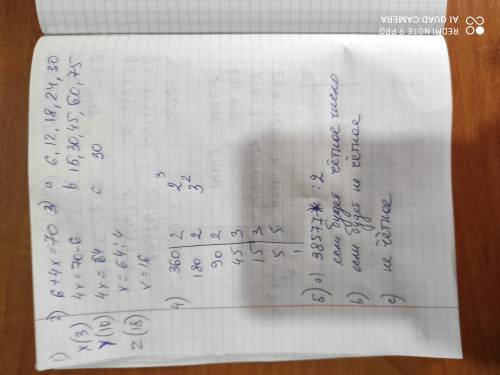 1)
x(3)
y(10)
z(18)
2) 6+4x=70
4x=70-6
4x=64
x=64:4
x=16
3) a 6, 12, 18, 24, 30
b 15, 30, 45, 60, 75
c. 30
4)
360 2
180 2
90 2
45 3
15 3
5 5
1
2³
3²
5) a) 38577* :2
если будет чётное число
b) если будет не чётное
c) не чётное
REDMI NOTE 9 PRO
AI QUAD CAMERA